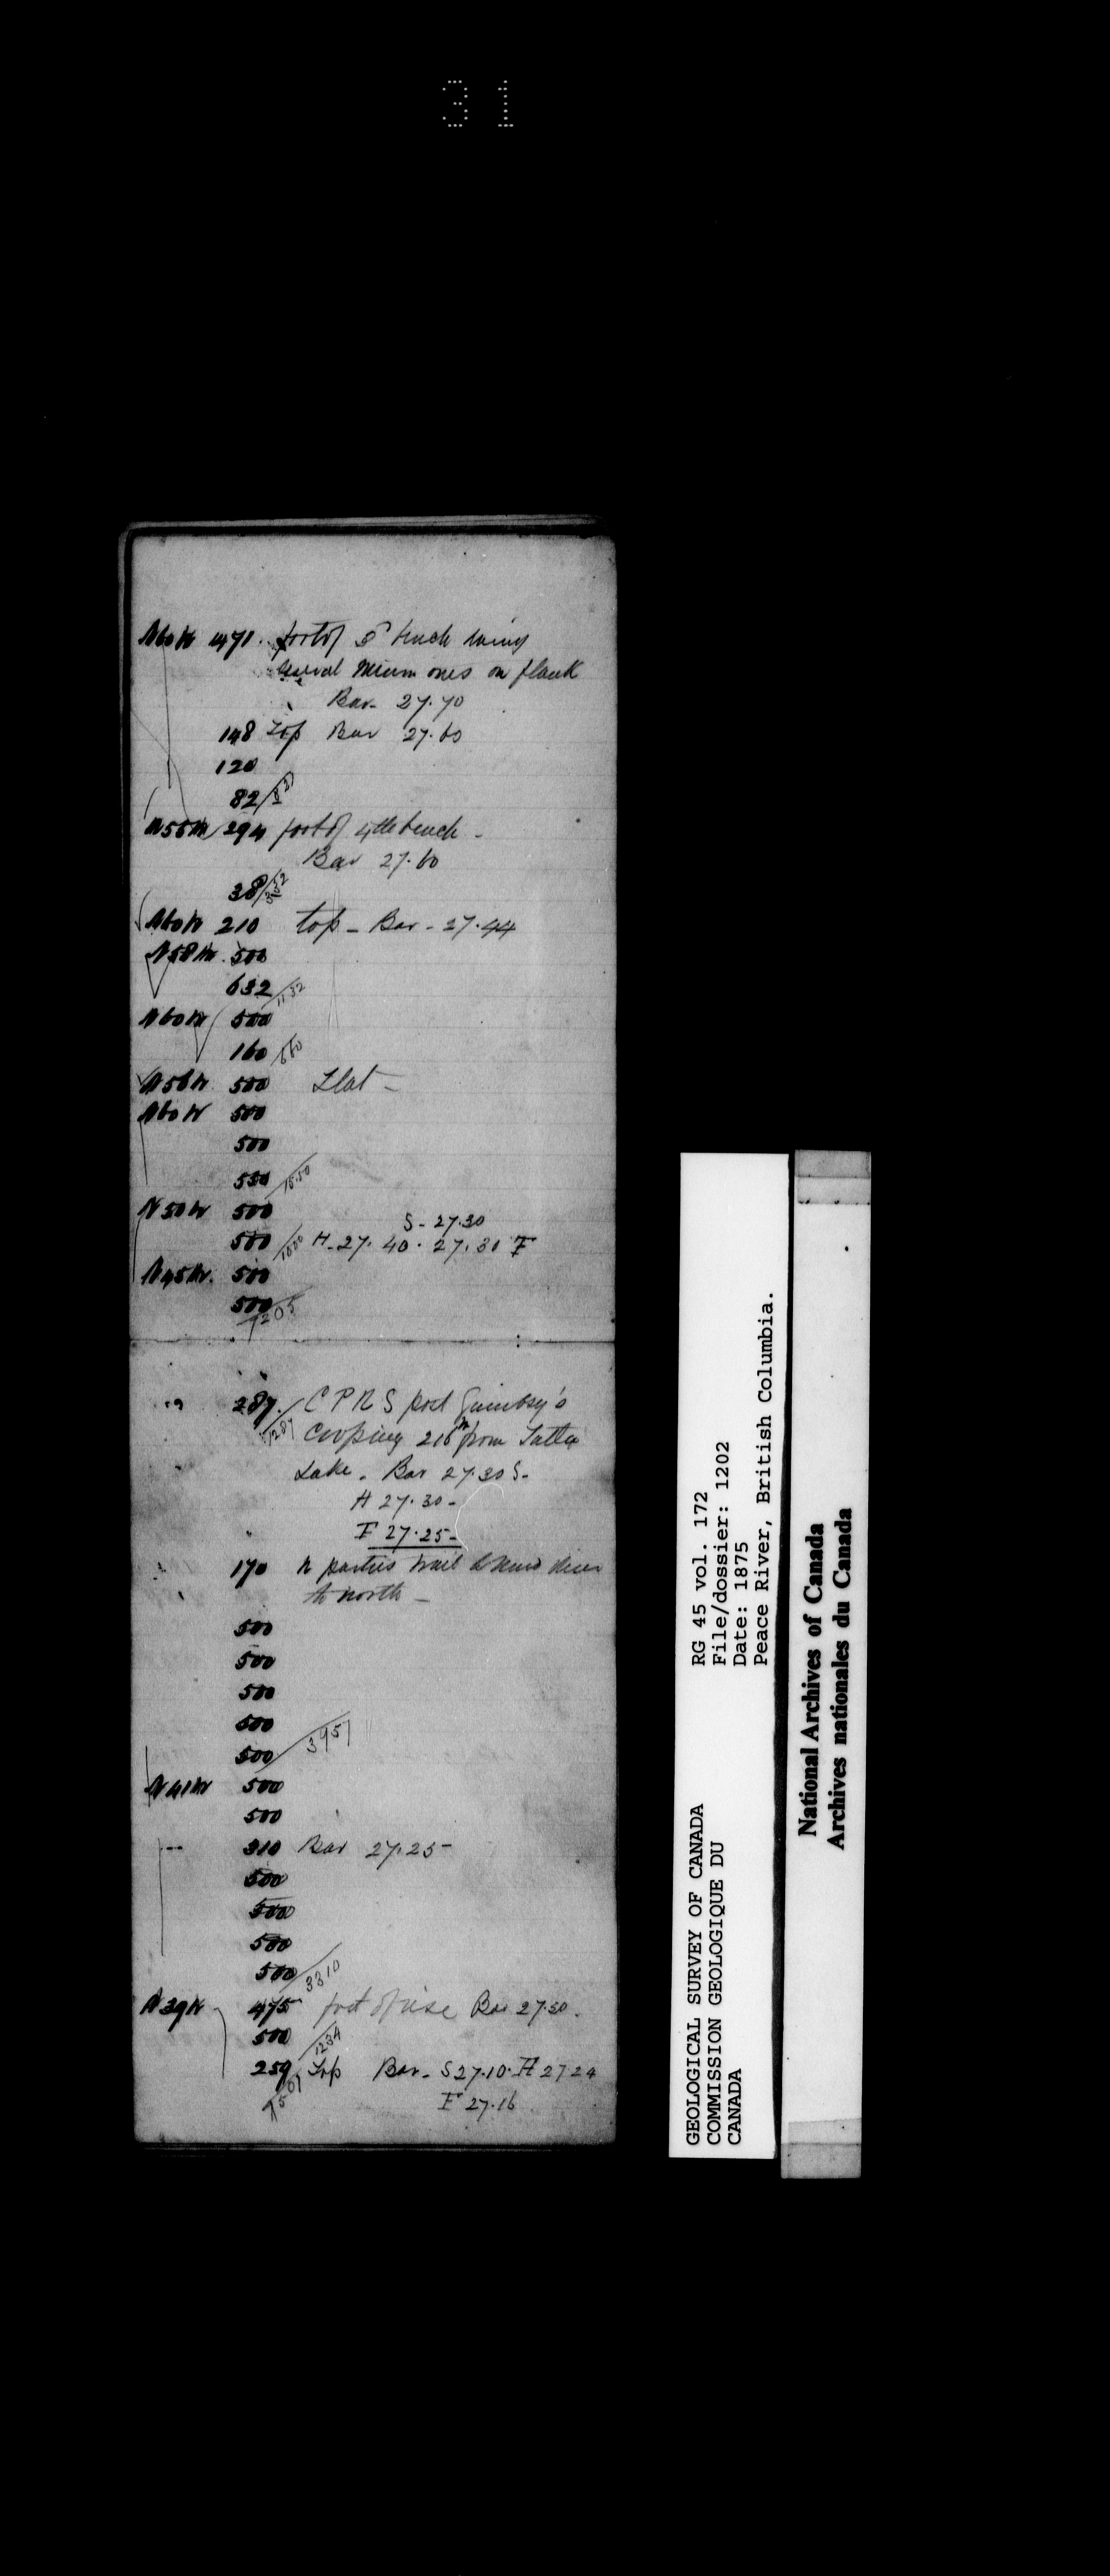 31
N60W 471. foot of 3rd bench having
several minor ones on flank
Bar. 27.70
148 Top Bar 27.60
120
82/821
N55W 294 foot of 4th bench -
Bar 27.60
38/332
N60W 210 top - Bar - 27.44
N58W 500
632 /1132
N60W 500
160 /660
N56W 500 Flat -
N60W 500
500
550 /1550
N50W 500
S - 27.30
500 /1000 H - 27.40 . 27.30 F
N45W. 500
500
7205
287. / C P R S post
1287 216 from Tatla
Lake. Bar 27.30 S -
H 27.30 -
F 27.25 -
170 parties trail
to north -
500
500
500
500
500 / 3957
N41W 500
500
310 Bar 27.25 -
500
500
500
500 / 3310
N39W 475 foot of rise Bar 27.30.
500
1234
259 Top Bar - S 27.10. H 27.24
7501
F 27.16
GEOLOGICAL SURVEY OF CANADA
COMMISSION GEOLOGIQUE DU
CANADA
RG 45 vol. 172
File/dossier: 1202
Date: 1875
Peace River, British Columbia.
National Archives of Canada
Archives nationales du Canada